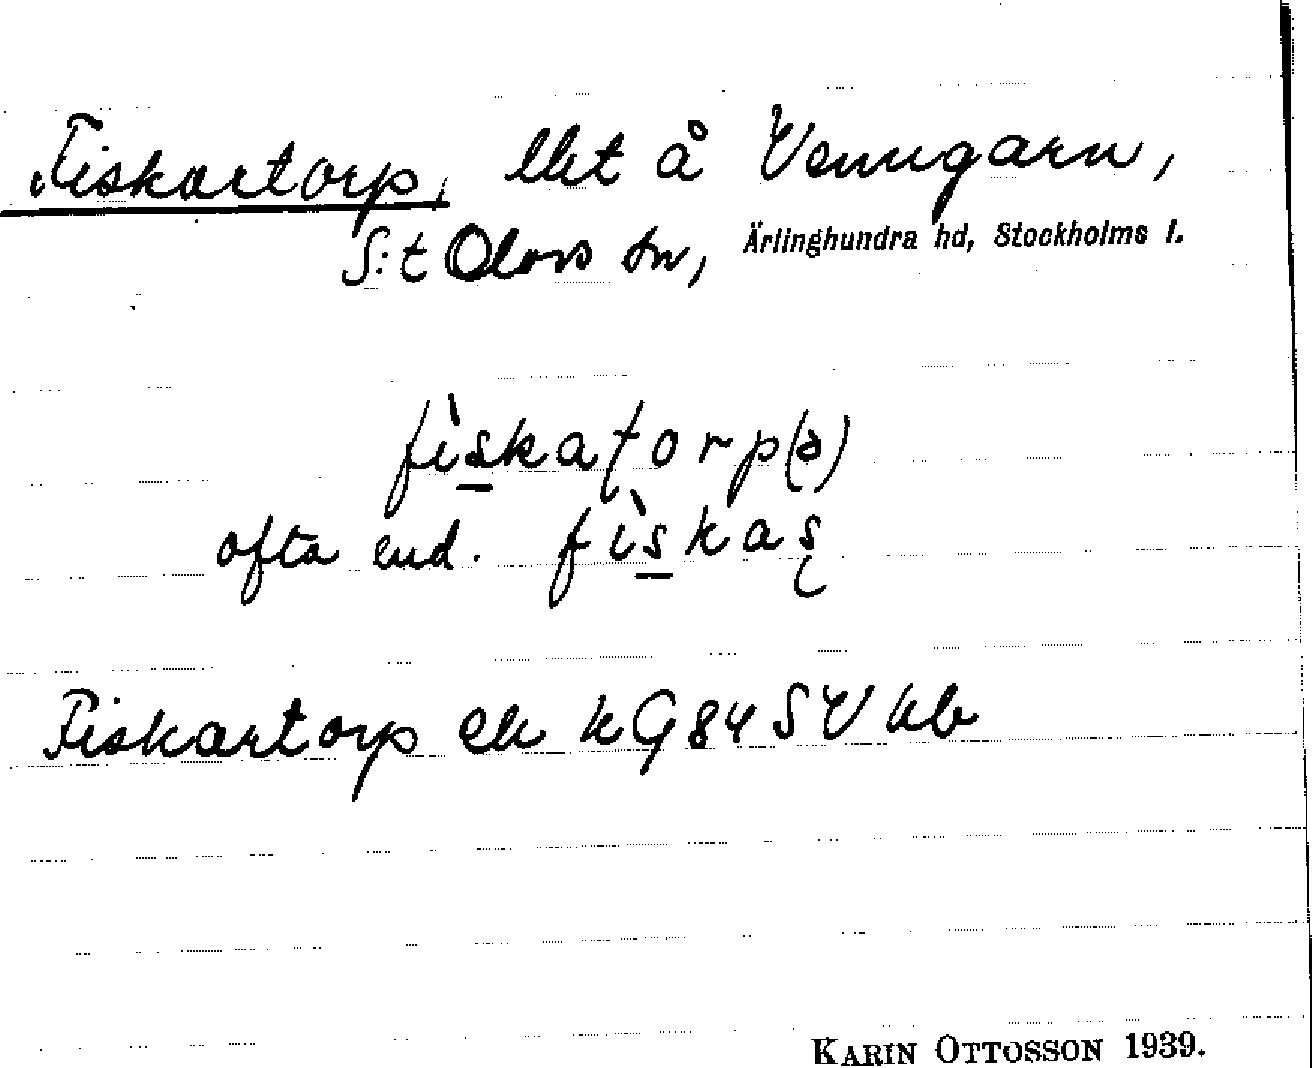 Fiskartorp, lht å Venngarn,
S:t Olovs sn, Ärlinghundra hd, Stockholms l.
fìs̠katorp(ə)
ofta end. fìs̠kaș
Fiskartorp ek kG84SV kb
KARIN OTTOSSON 1939.